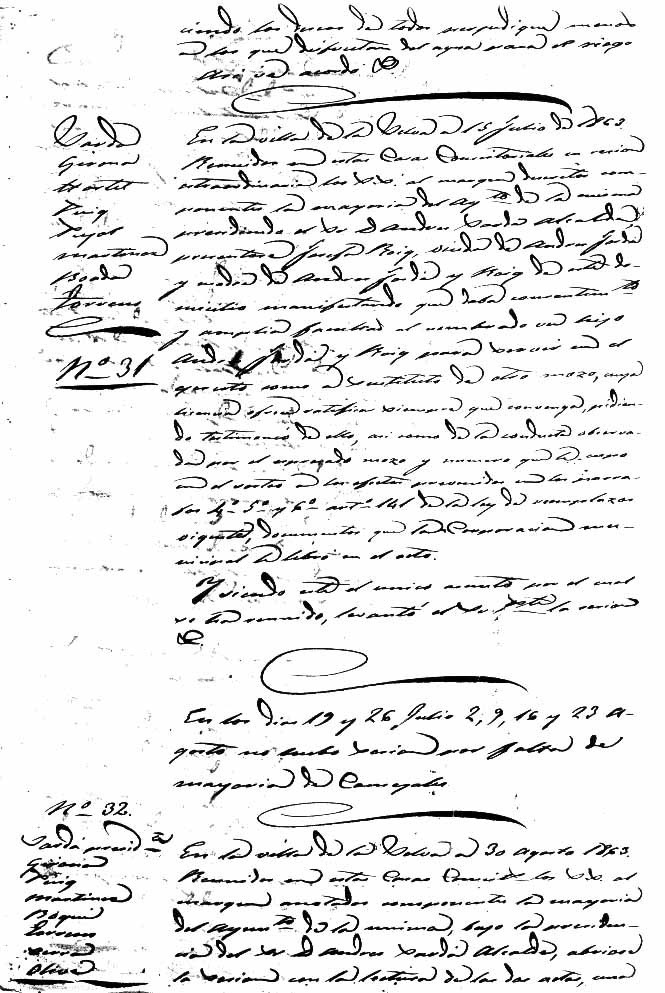 ciendo los deseos de todos se perdiquen menos
a los que disfrutan del agua para el riego
Así se acordó
Sardá
Girona
Martell
Puig
Pujol
Martinez
Boada
Torrens
Nº 31
En la villa de la Selva a 15 Julio de 1863
Reunidos en estas Casas Consistoriales en sesion
extraordinaria los S.S. al margen descritos com-
ponentes la mayoria del Ayto de la misma
presidiendo el Sr. D. Andres Sardá Alcalde,
presentose Josefa Roig, viuda de Andres Jordá
y madre de Andres Jordá y Roig de este do-
micilio manifestando que daba consentimto
y amplia facultad al nombrado su hijo
Andres Jordá y Roig para servir en el
ejercito como a sustituto de otro mozo, cuya
licencia ofrece ratificar siempre que convenga, pidien-
do testimonio de ello, asi como de la conducta observa-
da por el expresado mozo y numero que le cupo
en el sorteo a los efectos prevenidos en los parra-
fos 4º 5º y 6º artº 141 de la ley de reemplazos
vigente, documentos que la Corporacion mu-
nicipal le libró en el acto.
Y siendo este el unico asunto por el cual
se ha reunido, levantó el Sr. Pste la sesion
En los dias 19 y 26 Julio 2, 9, 16 y 23 A-
gosto no hubo sesion por falta de
mayoria de Concejales
Nº 32.
Sardá presidte
Girona
Puig
Martinez
Boqué
Torrens
Serra
Oliva
En la villa de la Selva a 30 Agosto 1863.
Reunidos en estas Casas Consistles los S.S. al
margen anotados componentes la mayoria
del Ayunto de la misma, bajo la presiden-
cia del Sr. D. Andres Sardá Alcalde, abriose
la sesion con la lectura de las dos actas, una